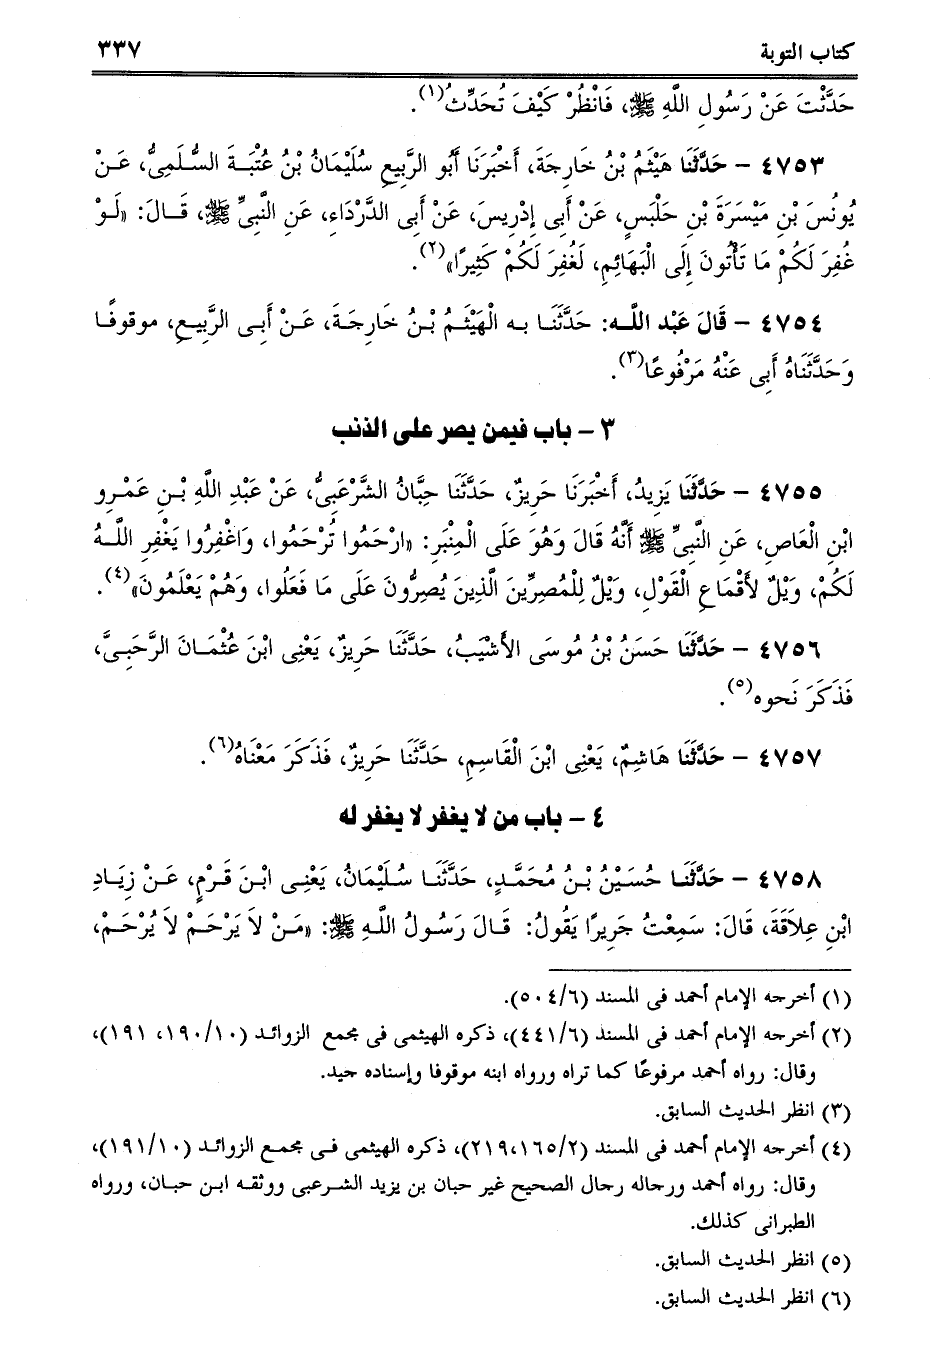 كتاب التوبة ٣٣٧
حَدَّثْتَ عَنْ رَسُولِ اللَّهِ ﷺ، فَانْظُرْ كَيْفَ تُحَدِّثُ(١).
٤٧٥٣ - حَدَّثَنَا هَيْثَمُ بْنُ خَارِجَةَ، أَخْبَرَنَا أَبُو الرَّبِيعِ سُلَيْمَانُ بْنُ عُتْبَةَ السُّلَمِىُّ، عَنْ
يُونُسَ بْنِ مَيْسَرَةَ بْنِ حَلْبَسٍ، عَنْ أَبِى إِدْرِيسَ، عَنْ أَبِى الدَّرْدَاءِ، عَنِ النَّبِىِّ ﷺ، قَالَ: «لَوْ
غُفِرَ لَكُمْ مَا تَأْتُونَ إِلَى الْبَهَائِمِ، لَغُفِرَ لَكُمْ كَثِيرًا»(٢).
٤٧٥٤ - قَالَ عَبْد اللَّه: حَدَّثَنَا به الْهَيْثَمُ بْنُ خَارِجَةَ، عَنْ أَبِى الرَّبِيعِ، موقوفًا
وَحَدَّثَنَاهُ أَبِى عَنْهُ مَرْفُوعًا(٣).
٣ - باب فيمن يصر على الذنب
٤٧٥٥ - حَدَّثَنَا يَزِيدُ، أَخْبَرَنَا حَرِيزٌ، حَدَّثَنَا حِبَّانُ الشَّرْعَبِىُّ، عَنْ عَبْدِ اللَّهِ بْنِ عَمْرِو
ابْنِ الْعَاصِ، عَنِ النَّبِىِّ ﷺ أَنَّهُ قَالَ وَهُوَ عَلَى الْمِنْبَرِ: «ارْحَمُوا تُرْحَمُوا، وَاغْفِرُوا يَغْفِرِ اللَّهُ
لَكُمْ، وَيْلٌ لأَقْمَاعِ الْقَوْلِ، وَيْلٌ لِلْمُصِرِّينَ الَّذِينَ يُصِرُّونَ عَلَى مَا فَعَلُوا، وَهُمْ يَعْلَمُونَ»(٤).
٤٧٥٦ - حَدَّثَنَا حَسَنُ بْنُ مُوسَى الأَشْيَبُ، حَدَّثَنَا حَرِيزٌ، يَعْنِى ابْنَ عُثْمَانَ الرَّحَبِىَّ،
فَذَكَرَ نَحوه(٥).
٤٧٥٧ - حَدَّثَنَا هَاشِمٌ، يَعْنِى ابْنَ الْقَاسِمِ، حَدَّثَنَا حَرِيزٌ، فَذَكَرَ مَعْنَاهُ(٦).
٤ - باب من لا يغفر لا يغفر له
٤٧٥٨ - حَدَّثَنَا حُسَيْنُ بْنُ مُحَمَّدٍ، حَدَّثَنَا سُلَيْمَانُ، يَعْنِى ابْنَ قَرْمٍ، عَنْ زِيَادِ
ابْنِ عِلاَقَةَ، قَالَ: سَمِعْتُ جَرِيرًا يَقُولُ: قَالَ رَسُولُ اللَّهِ ﷺ: «مَنْ لاَ يَرْحَمْ لاَ يُرْحَمْ،
(١) أخرجه الإمام أحمد فى المسند (٥٠٤/٦).
(٢) أخرجه الإمام أحمد فى المسند (٤٤١/٦)، ذكره الهيثمى فى مجمع الزوائد (١٩٠/١٠، ١٩١)،
وقال: رواه أحمد مرفوعًا كما تراه ورواه ابنه موقوفا وإسناده جيد.
(٣) انظر الحديث السابق.
(٤) أخرجه الإمام أحمد فى المسند (٢١٩،١٦٥/٢)، ذكره الهيثمى فى مجمع الزوائد (١٩١/١٠)،
وقال: رواه أحمد ورجاله رجال الصحيح غير حبان بن يزيد الشرعبى ووثقه ابن حبان، ورواه
الطبرانى كذلك.
(٥) انظر الحديث السابق.
(٦) انظر الحديث السابق.